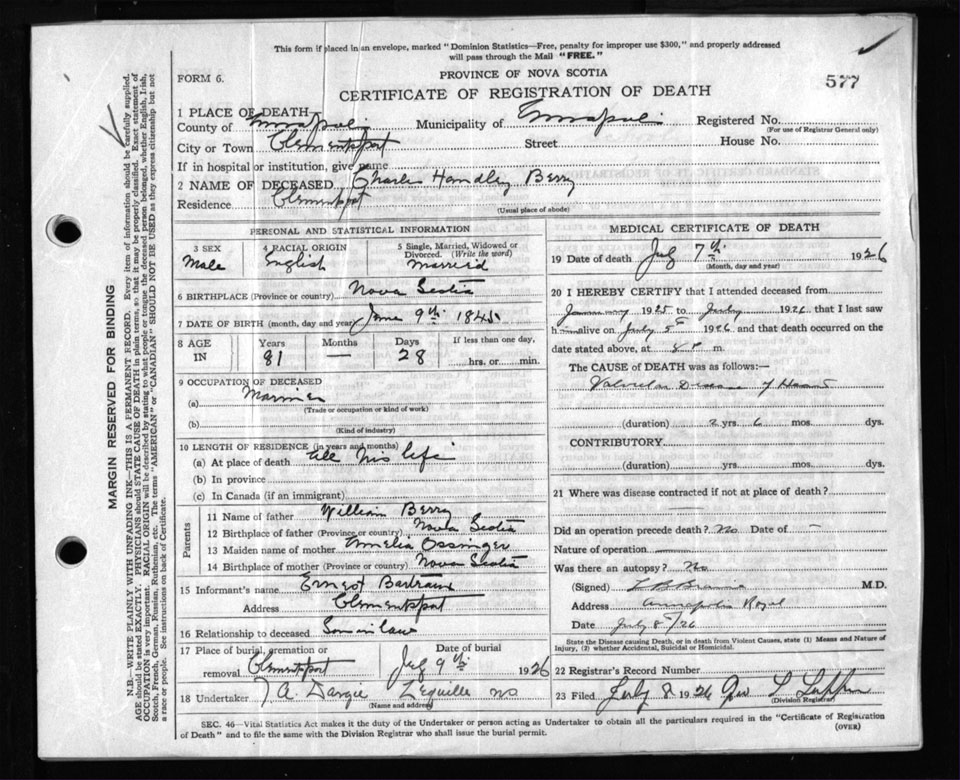 This form if placed in an envelope, marked "Dominion Statistics—Free, penalty for improper use $300," and properly addressed
will pass through the Mail "FREE."
FORM 6.
PROVINCE OF NOVA SCOTIA
577
CERTIFICATE OF REGISTRATION OF DEATH
1 PLACE OF DEATH
County of Annapolis Municipality of Annapolis Registered No.
(For use of Registrar General only)
City or Town Clementsport Street House No.
If in hospital or institution, give name
2 NAME OF DECEASED Charles Handley Berry
Residence Clementsport
(Usual place of abode)
PERSONAL AND STATISTICAL INFORMATION
3 SEX 4 RACIAL ORIGIN 5 Single, Married, Widowed or
Divorced. (Write the word)
Male English Married
6 BIRTHPLACE (Province or country) Nova Scotia
7 DATE OF BIRTH (month, day and year) June 9th 1845
8 AGE IN Years Months Days If less than one day,
81 — 28 hrs. or min.
9 OCCUPATION OF DECEASED
(a) Mariner
(Trade or occupation or kind of work)
(b)
(Kind of industry)
10 LENGTH OF RESIDENCE (in years and months)
(a) At place of death all his life
(b) In province
(c) In Canada (if an immigrant)
Parents
11 Name of father William Berry
12 Birthplace of father (Province or country) Nova Scotia
13 Maiden name of mother Amelia Ossinger
14 Birthplace of mother (Province or country) Nova Scotia
15 Informant's name Ernest Bertram
Address Clementsport
16 Relationship to deceased Son in law
17 Place of burial, cremation or Date of burial
removal Clementsport July 9th 1926
18 Undertaker A. Dargie Lequille NS
(Name and address)
MEDICAL CERTIFICATE OF DEATH
19 Date of death July 7th 1926
(Month, day and year)
20 I HEREBY CERTIFY that I attended deceased from
January 1925 to July 1926 that I last saw
him alive on July 5th 1926 and that death occurred on the
date stated above, at 8 P m.
The CAUSE of DEATH was as follows:—
Valvular Disease of Heart
(duration) 2 yrs. 6 mos. dys.
CONTRIBUTORY
(duration) yrs. mos. dys.
21 Where was disease contracted if not at place of death?
Did an operation precede death? No Date of —
Nature of operation —
Was there an autopsy? No
(Signed) L B M.D.
Address Annapolis Royal
Date July 8th/26
State the Disease causing Death, or in death from Violent Causes, state (1) Means and Nature of
Injury, (2) whether Accidental, Suicidal or Homicidal.
22 Registrar's Record Number
23 Filed July 8 1926 Geo L
(Division Registrar)
SEC. 46—Vital Statistics Act makes it the duty of the Undertaker or person acting as Undertaker to obtain all the particulars required in the "Certificate of Registration
of Death" and to file the same with the Division Registrar who shall issue the burial permit.
(OVER)
MARGIN RESERVED FOR BINDING
N.B.—WRITE PLAINLY WITH UNFADING INK—THIS IS A PERMANENT RECORD. Every item of information should be carefully supplied.
AGE should be stated EXACTLY. PHYSICIANS should STATE CAUSE OF DEATH in plain terms, so that it may be properly classified. Exact statement of
OCCUPATION is very important. RACIAL ORIGIN will be described by stating to what people or tongue the deceased person belonged, whether English, Irish,
Scotch, French, German, Russian, Ruthenian, etc. The terms "AMERICAN" or "CANADIAN" SHOULD NOT BE USED as they express citizenship but not
a race or people. See instructions on back of Certificate.